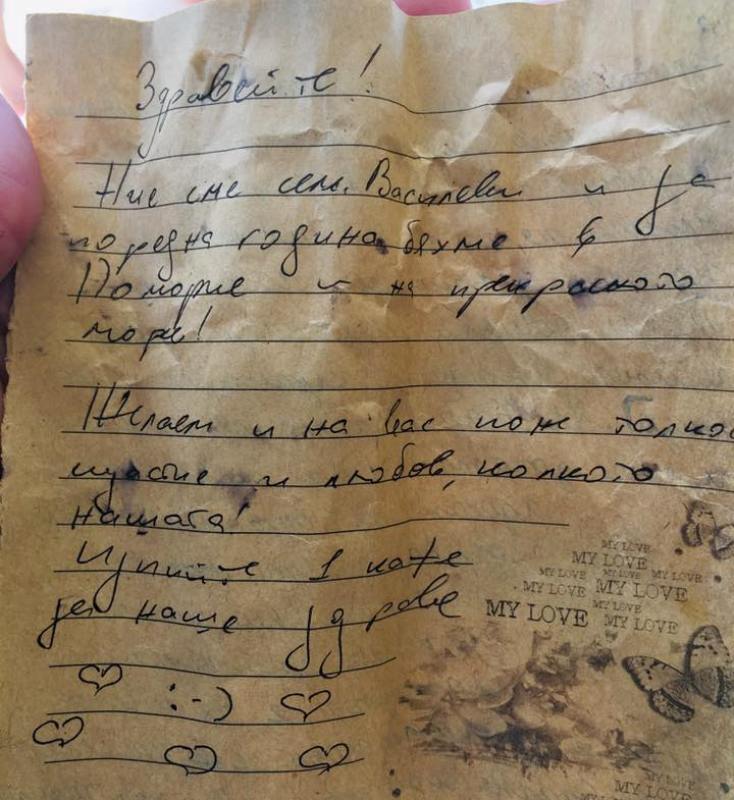 Здравейте!
Ние сме сем. Василеви и за
поредна година бяхме в
Поморие и на прекрасното
море!
Желаем и на вас поне толкова
щастие и любов, колкото
нашата!
Изпийте 1 кафе
за наше здраве
:-)
MY LOVE
MY LOVE
MY LOVE MY LOVE MY LOVE
MY LOVE MY LOVE
MY LOVE
MY LOVE MY LOVE
MY LOVE
MY LOVE